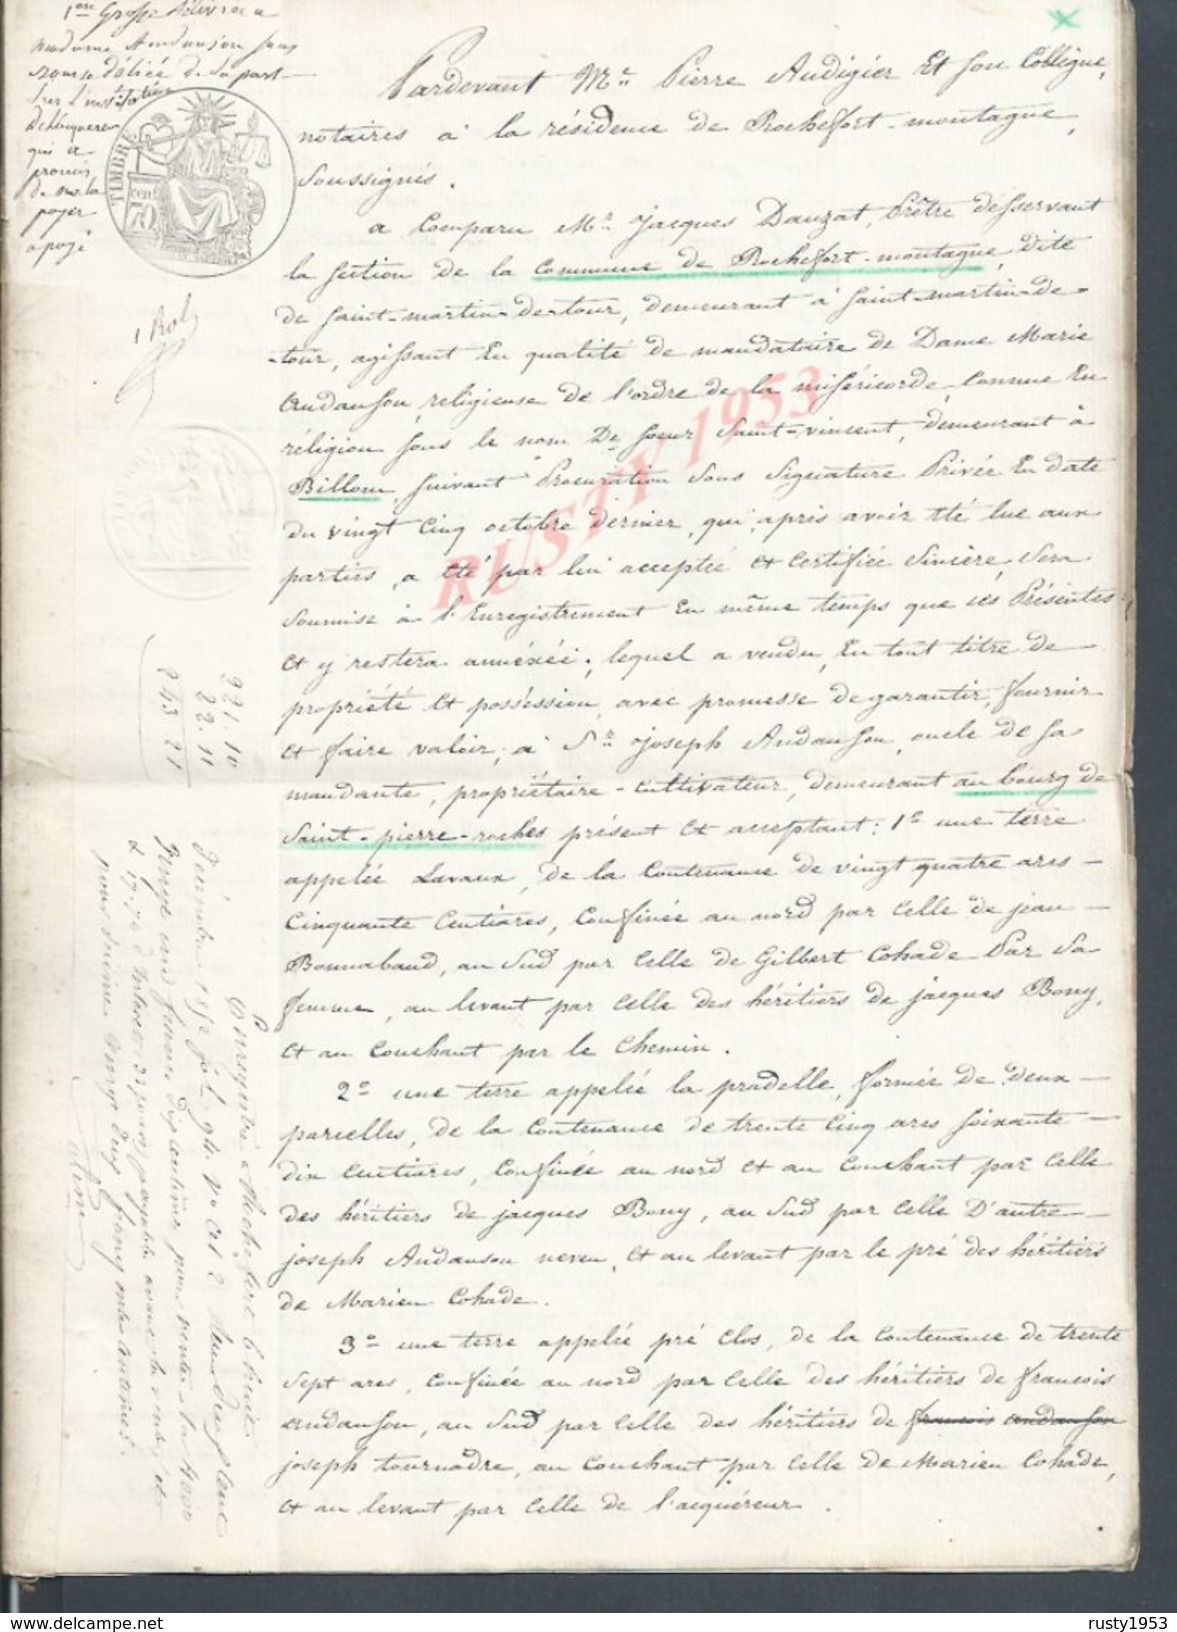 1ere Grosse délivrée a
madame Audanson sans
de sa part
sur l'
qui a
promis
de
payer
Pardevant Me Pierre Audigier et son Collègue,
notaires à la résidence de Rochefort-montagne,
soussignés.
TIMBRE
cent
70
a Comparu Mr. jacques Dauzat, Prêtre desservant
la section de la commune de Rochefort-montagne, dite
de Saint-martin-de-tour, demeurant à Saint-martin-de-
-tour, agissant en qualité de mandataire de Dame Marie
Audanson, religieuse de l'ordre de la miséricorde, Connue en
réligion sous le nom De soeur Saint-vincent, demeurant à
Billom, suivant Procuration Sous Signature Privée En date
du vingt Cinq octobre dernier, qui, après avoir été lue aux
parties, a été par lui acceptée et certifiée Sincère, Sera
Soumise à l'Enregistrement En même temps que ces Présentes
et y restera annéxéé; lequel a vendu, En tout titre de
propriété et posséssion, avec promesse de garantir, fournir
et faire valoir, à Sr. joseph Audanson, oncle de sa
mandante, propriétaire-cultivateur, demeurant au bourg de
Saint-pierre-roches présent et acceptant: 1º une terre
appelée Lavaux, de la Contenance de vingt quatre ares
Cinquante Centiares, Confinée au nord par Celle de jean
Bonnabaud, au Sud par Celle de Gilbert Cohade Par Sa
femme, au levant par Celle des héritiers de jacques Bony,
et au Couchant par le Chemin.
2º une terre appelée la pradelle, formée de deux
parcelles, de la Contenance de trente Cinq ares soixante
dix Centiares, Confinée au nord et au Couchant par Celle
des héritiers de jacques Bony, au Sud par Celle D'autre
joseph Audanson neveu, et au levant par le pré des héritiers
de Marien Cohade.
3º une terre appelée pré Clos, de la Contenance de trente
Sept ares, Confinée au nord par Celle des héritiers de francois
Audanson, au Sud par Celle des héritiers de francois Audanson
joseph tournadre, au Couchant par Celle de Marien Cohade,
et au levant par Celle de l'acquéreur.
1 Rol
221.10
22.11
243 21
Enregistré à Rochefort le huit
RUSTY 1953
www.delcampe.net
rusty1953